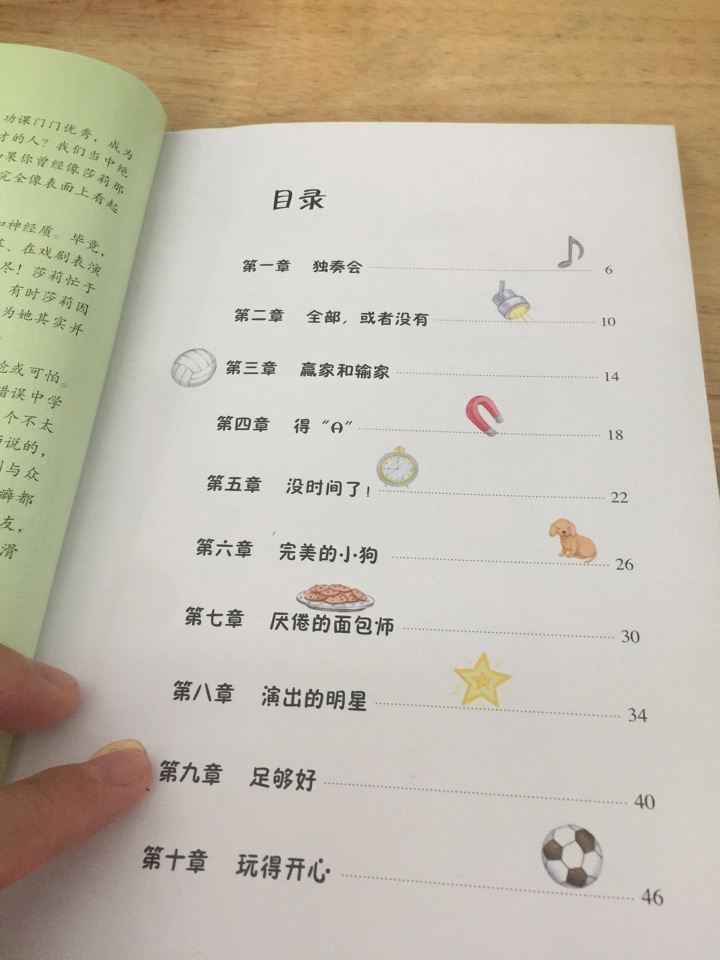 功课门门优秀，成为
才的人？我们当中绝
果你曾经像莎莉那
完全像表面上看起
和神经质。毕竟，
在戏剧表演
尽！莎莉忙于
有时莎莉因
为她其实并
或可怕。
错误中学
个不太
说的，
与众
癖都
友，
滑
目录
第一章 独奏会 6
第二章 全部，或者没有 10
第三章 赢家和输家 14
第四章 得“A” 18
第五章 没时间了！ 22
第六章 完美的小狗 26
第七章 厌倦的面包师 30
第八章 演出的明星 34
第九章 足够好 40
第十章 玩得开心 46